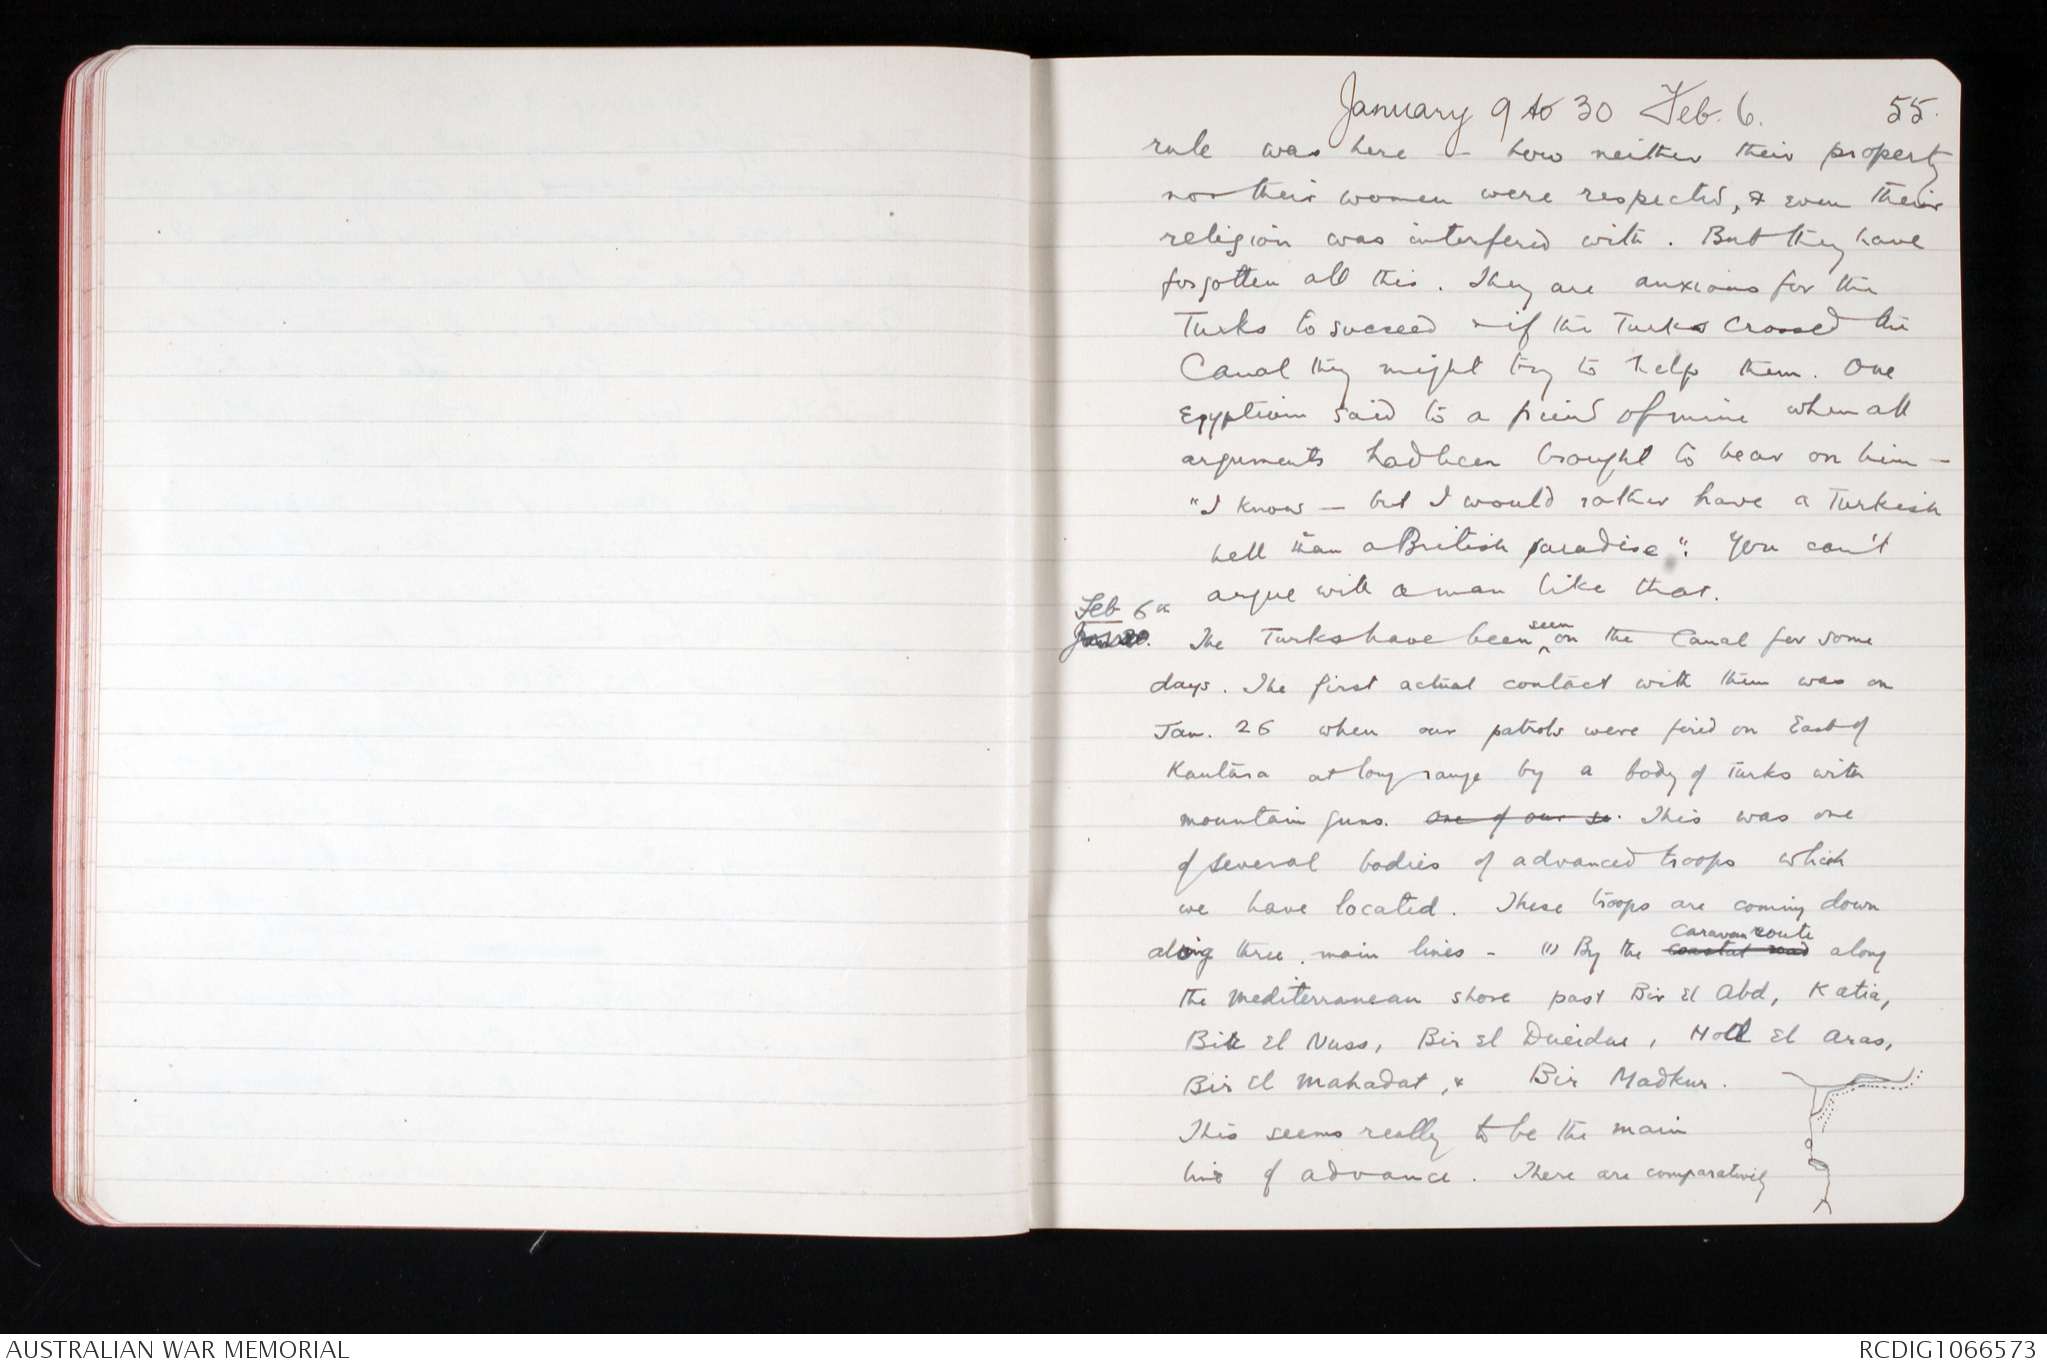 January 9 to 30 Feb. 6. 55.
rule was here - how neither their property
nor their women were respected, & even their
religion was interfered with. But they have
forgotten all this. They are anxious for the
Turks to succeed & if the Turks crossed the
Canal they might try to help them. One
Egyptian said to a friend of mine when all
arguments had been brought to bear on him -
"I know - but I would rather have a Turkish
hell than a British paradise". You can't
argue with a man like that.
Feb 6th
Jan 30.
The Turks have been seen on the Canal for some
days. The first actual contact with them was on
Jan. 26 when our patrols were fired on East of
Kantara at long range by a body of Turks with
mountain guns. one of our se. This was one
of several bodies of advanced troops which
we have located. These troops are coming down
along three main lines - (1) By the coastal road caravan route along
the Mediterranean shore past Bir El Abd, Katia,
Bir El Nuss, Bir El Dueidar, Hod El Aras,
Bir El Mahadat, & Bir Madkur.
This seems really to be the main
line of advance. There are comparatively
AUSTRALIAN WAR MEMORIAL
RCDIG1066573